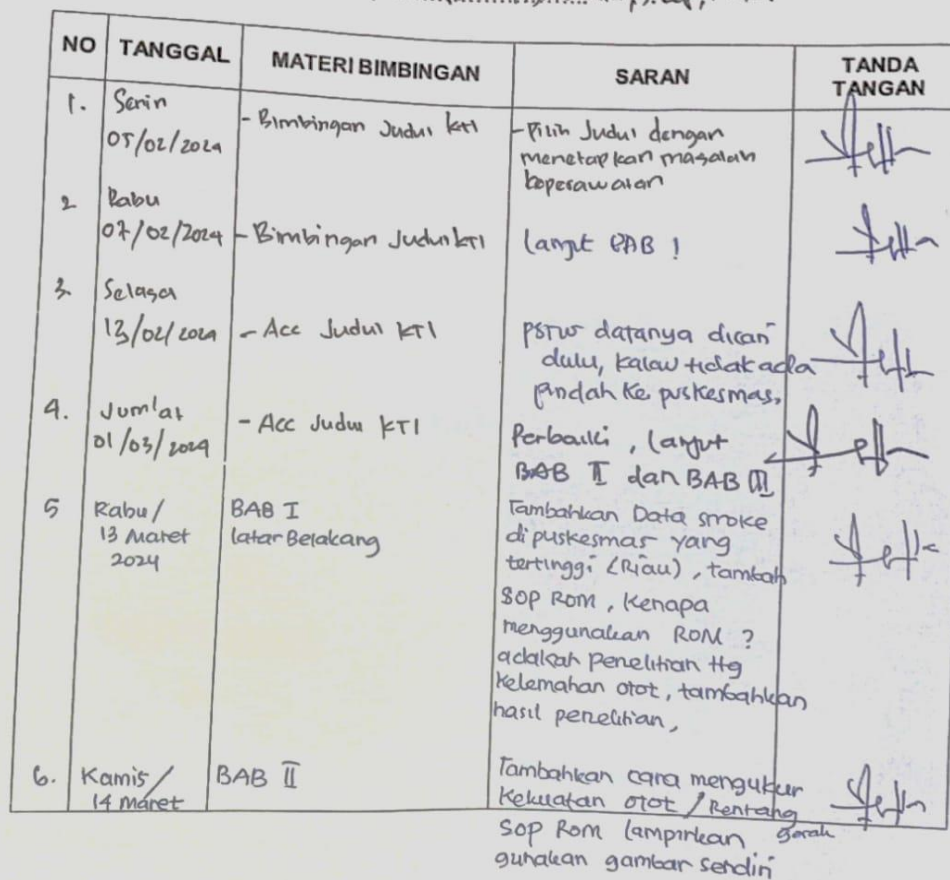 NO TANGGAL MATERI BIMBINGAN SARAN TANDA TANGAN
1. Senin
05/02/2024
- Bimbingan Judul KTI
- Pilih Judul dengan
menetapkan masalah
keperawatan
2 Rabu
07/02/2024
- Bimbingan Judul KTI
lanjut BAB 1
3. Selasa
13/02/2024
- Acc Judul KTI
PSTW datanya dicari
dulu, kalau tidak ada
pindah ke puskesmas.
4. Jum'at
01/03/2024
- Acc Judul KTI
Perbaiki, lanjut
BAB II dan BAB III
5 Rabu/
13 Maret
2024
BAB I
latar Belakang
Tambahkan Data stroke
di puskesmas yang
tertinggi (Riau), tambah
SOP ROM, Kenapa
menggunakan ROM ?
adakah penelitian ttg
kelemahan otot, tambahkan
hasil penelitian,
6. Kamis/
14 maret
BAB II
Tambahkan cara mengukur
kekuatan otot / Rentang
gerak
SOP ROM lampirkan
gunakan gambar sendiri